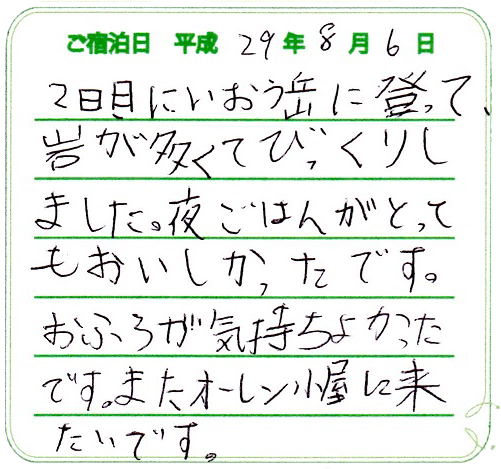 ご宿泊日 平成 29 年 8 月 6 日
2日目にいおう岳に登って、
岩が多くてびっくりし
ました。夜ごはんがとって
もおいしかったです。
おふろが気持ちよかった
です。また、オーレン小屋に来
たいです。